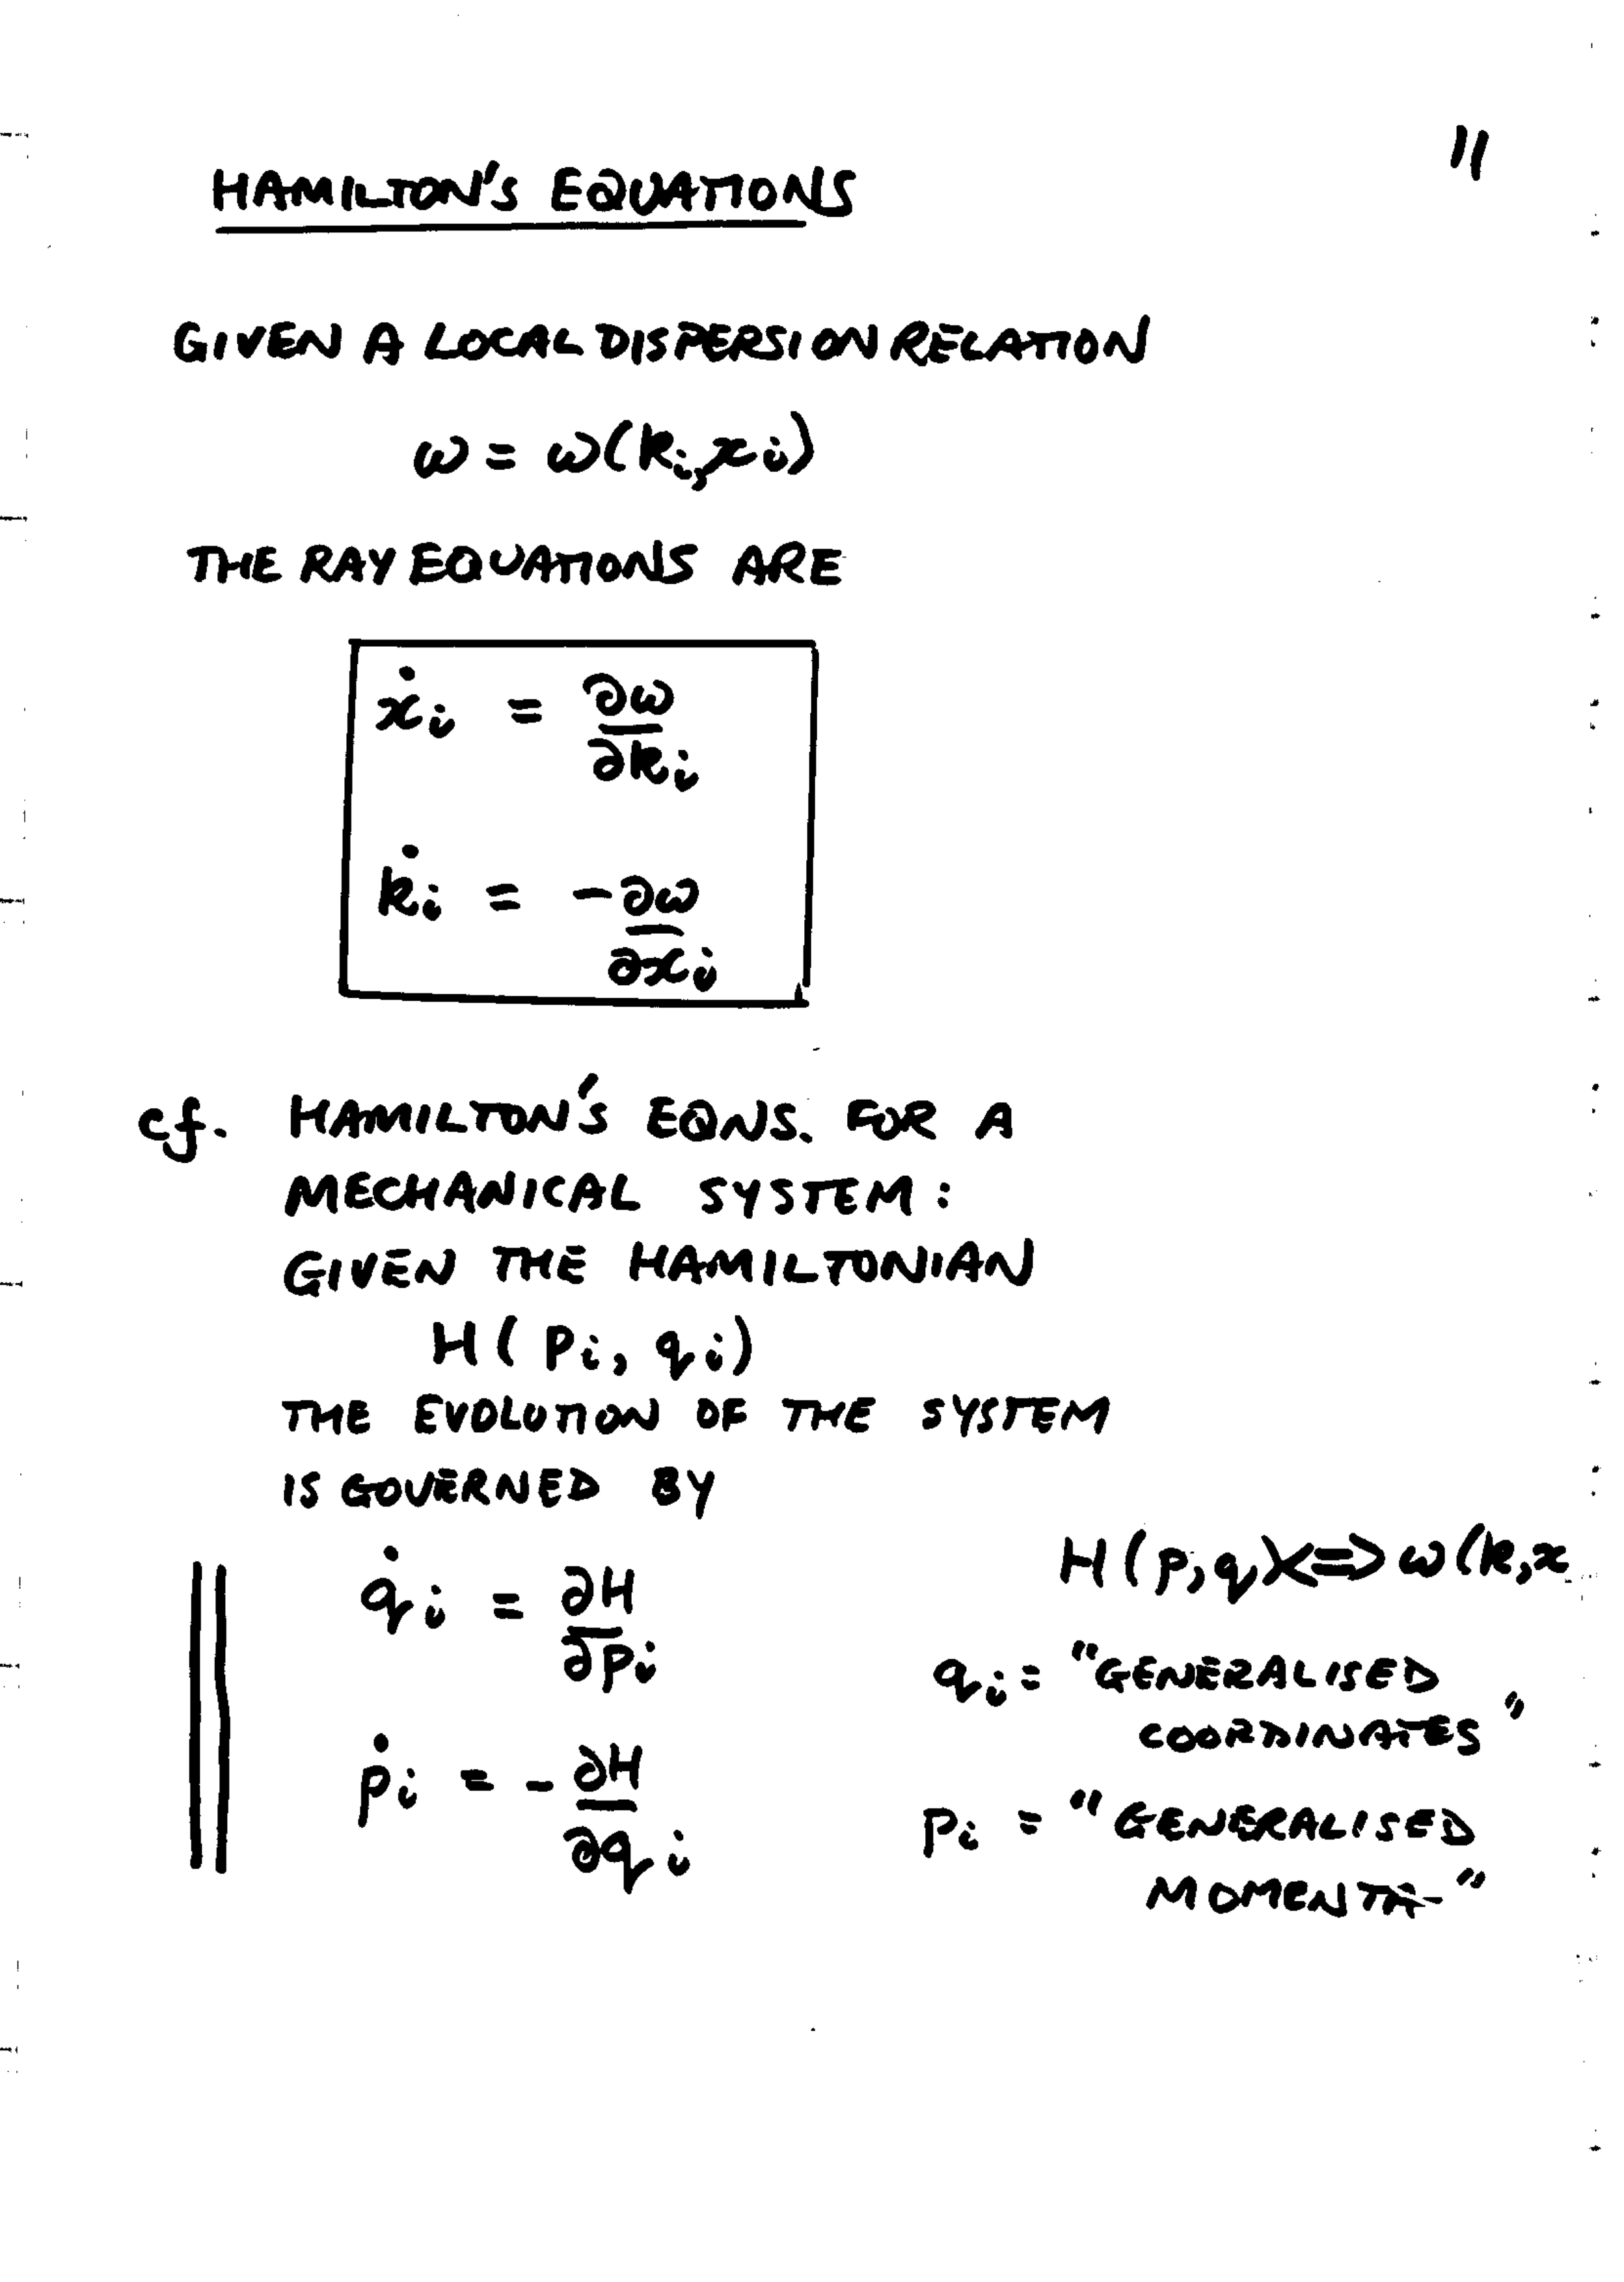 11
HAMILTON'S EQUATIONS
GIVEN A LOCAL DISPERSION RELATION
ω = ω(kᵢ, xᵢ)
THE RAY EQUATIONS ARE
ẋᵢ = ∂ω/∂kᵢ
k̇ᵢ = -∂ω/∂xᵢ
cf. HAMILTON'S EQNS. FOR A
MECHANICAL SYSTEM:
GIVEN THE HAMILTONIAN
H(pᵢ, qᵢ)
THE EVOLUTION OF THE SYSTEM
IS GOVERNED BY
q̇ᵢ = ∂H/∂pᵢ
ṗᵢ = -∂H/∂qᵢ
H(p,q) <=> ω(k,x
qᵢ = "GENERALISED
COORDINATES"
pᵢ = "GENERALISED
MOMENTA"